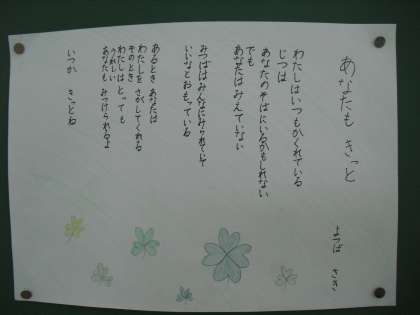 あなたも きっと
よつば さき
わたしはいつもかくれている
じつは
あなたのそばにいるかもしれない
でも
あなたはみえていない
みつばはみんなにみられていて
いいなとおもっている
あるとき あなたは
わたしを さがしてくれる
そのとき
わたしは とっても
うれしい
あなたも みつけられるよ
いつか きっとね